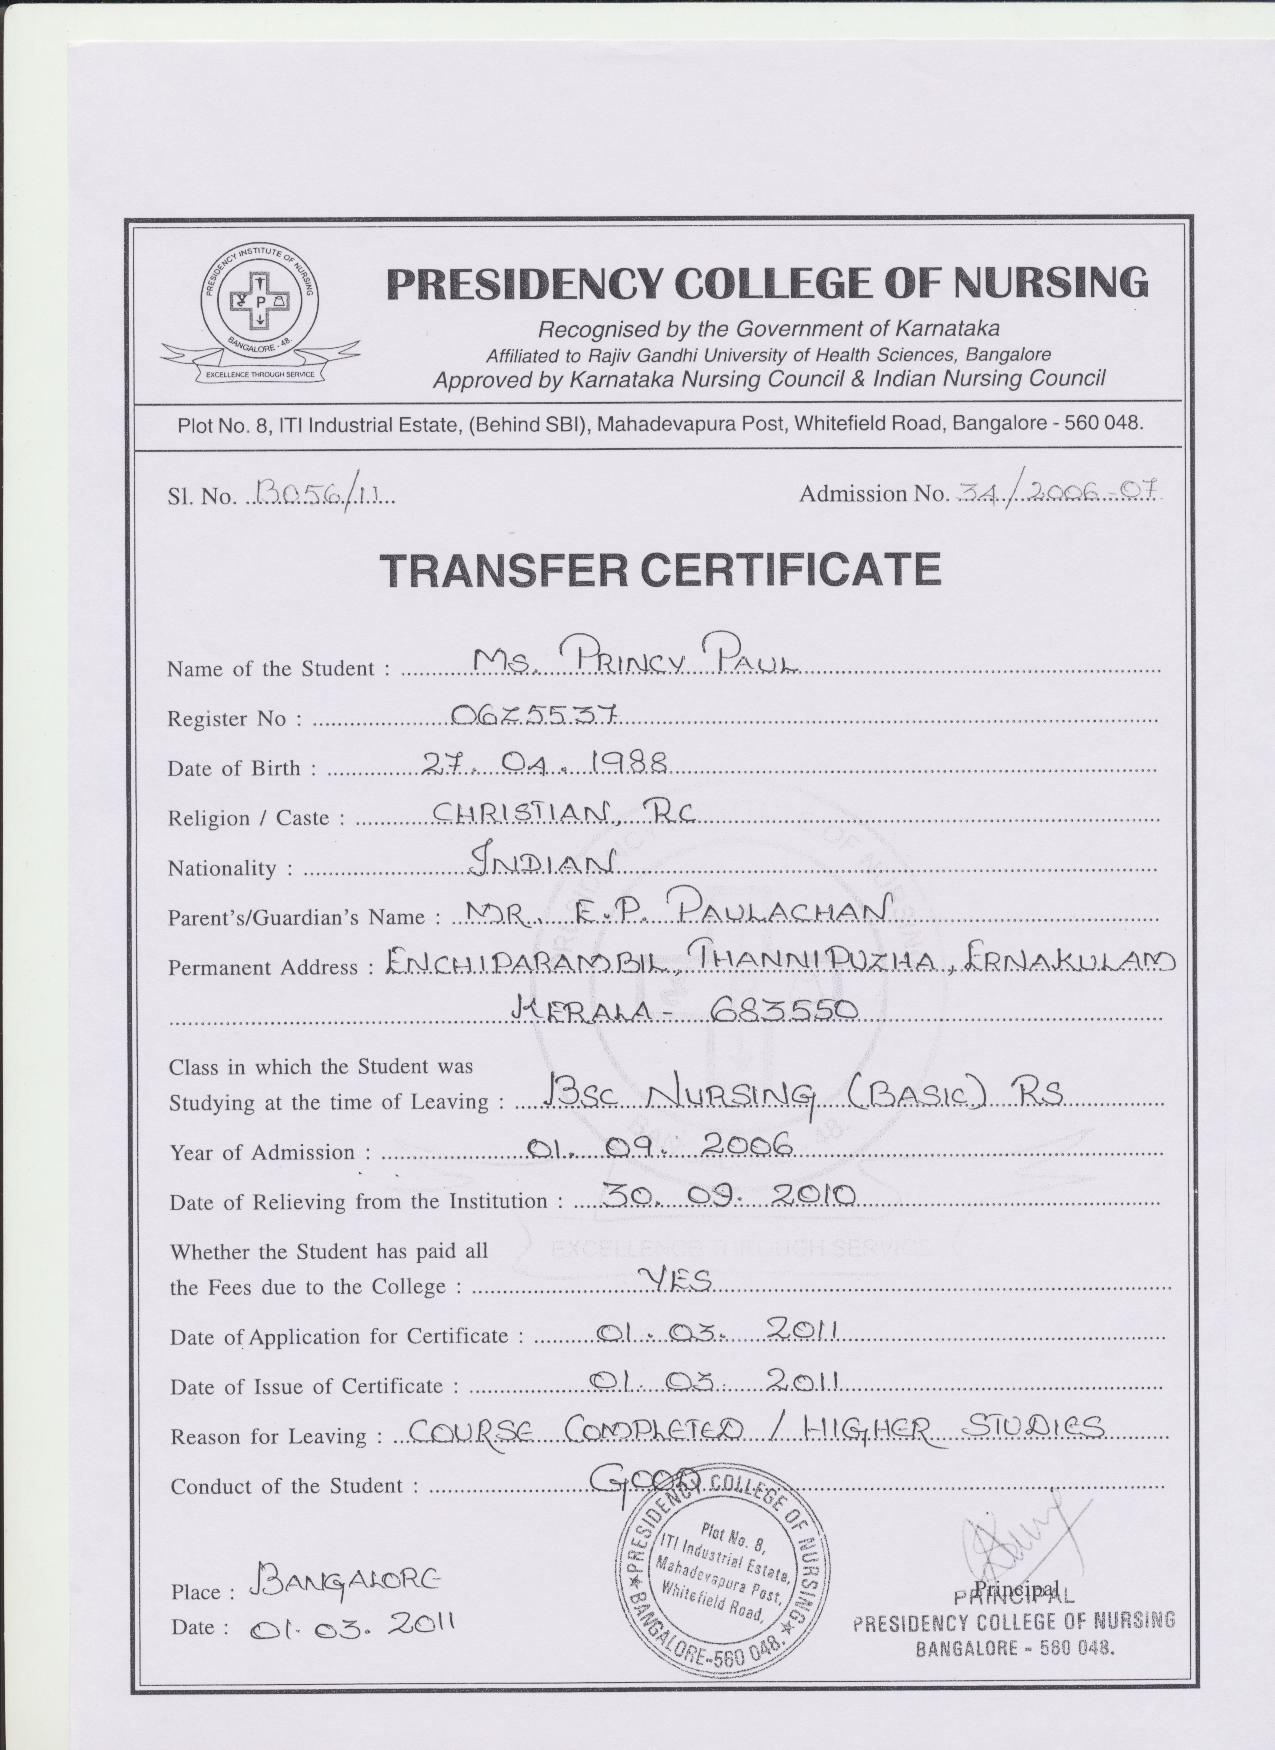 PRESIDENCY INSTITUTE OF NURSING
P
BANGALORE - 48.
EXCELLENCE THROUGH SERVICE
PRESIDENCY COLLEGE OF NURSING
Recognised by the Government of Karnataka
Affiliated to Rajiv Gandhi University of Health Sciences, Bangalore
Approved by Karnataka Nursing Council & Indian Nursing Council
Plot No. 8, ITI Industrial Estate, (Behind SBI), Mahadevapura Post, Whitefield Road, Bangalore - 560 048.
Sl. No. B056/11 Admission No. 34/2006-07
TRANSFER CERTIFICATE
Name of the Student : Ms. PRINCY PAUL
Register No : 06Z5537
Date of Birth : 27. 04. 1988
Religion / Caste : CHRISTIAN, RC
Nationality : INDIAN
Parent's/Guardian's Name : MR. E.P. PAULACHAN
Permanent Address : ENCHIPARAMBIL, THANNIPUZHA, ERNAKULAM
KERALA - 683550
Class in which the Student was
Studying at the time of Leaving : BSC NURSING (BASIC) RS
Year of Admission : 01. 09. 2006
Date of Relieving from the Institution : 30. 09. 2010
Whether the Student has paid all
the Fees due to the College : YES
Date of Application for Certificate : 01. 03. 2011
Date of Issue of Certificate : 01. 03. 2011
Reason for Leaving : COURSE COMPLETED / HIGHER STUDIES
Conduct of the Student : GOOD
PRESIDENCY COLLEGE OF NURSING
Plot No. 8,
ITI Industrial Estate,
Mahadevapura Post,
Whitefield Road,
BANGALORE-560 048.
Place : BANGALORE
Date : 01. 03. 2011
Principal
PRINCIPAL
PRESIDENCY COLLEGE OF NURSING
BANGALORE - 560 048.